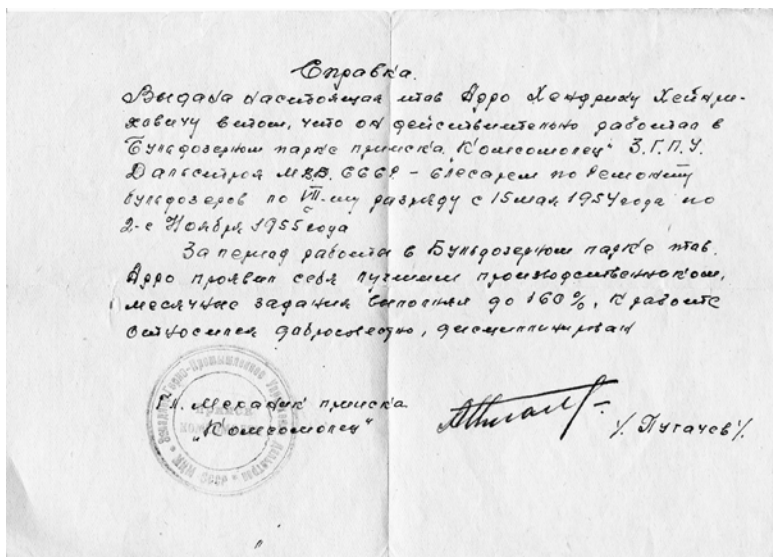 Справка.
Выдана настоящая тов Адро Хендрику Хейнри-
ховичу в том, что он действительно работал в
Бульдозерном парке прииска „Комсомолец" З.Г.П.У.
Дальстроя М.В.Д. СССР – слесарем по ремонту
бульдозеров по VII-му разряду с 15 мая 1954 года по
2-е Ноября 1955 года
За период работы в Бульдозерном парке тов.
Адро проявил себя лучшим производственником,
месячные задания выполнял до 160%, к работе
относился добросовестно, дисциплинирован
Гл. Механик прииска
„Комсомолец"
/. Пугачев /.
Западное Горно-Промышленное Управление
ПРИИСК